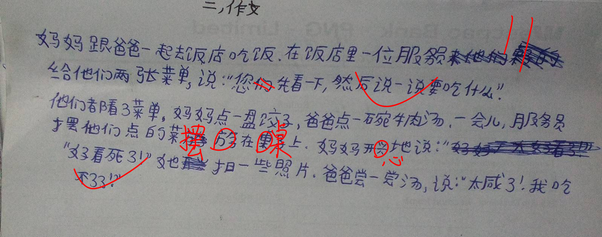 三、作文
妈妈跟爸爸一起去饭店吃饭.在饭店里一位服务
给他们两张菜单,说:"您们先看一下,然后说一说要吃什么".
他们都看了菜单.妈妈点一盘饺子,爸爸点一碗牛肉汤,一会儿,服务员
把他们点的菜 摆 在桌上.妈妈开心地说:
"好看死了!"她 拍一些照片.爸爸尝一尝汤,说:"太咸了!我吃
不了!"